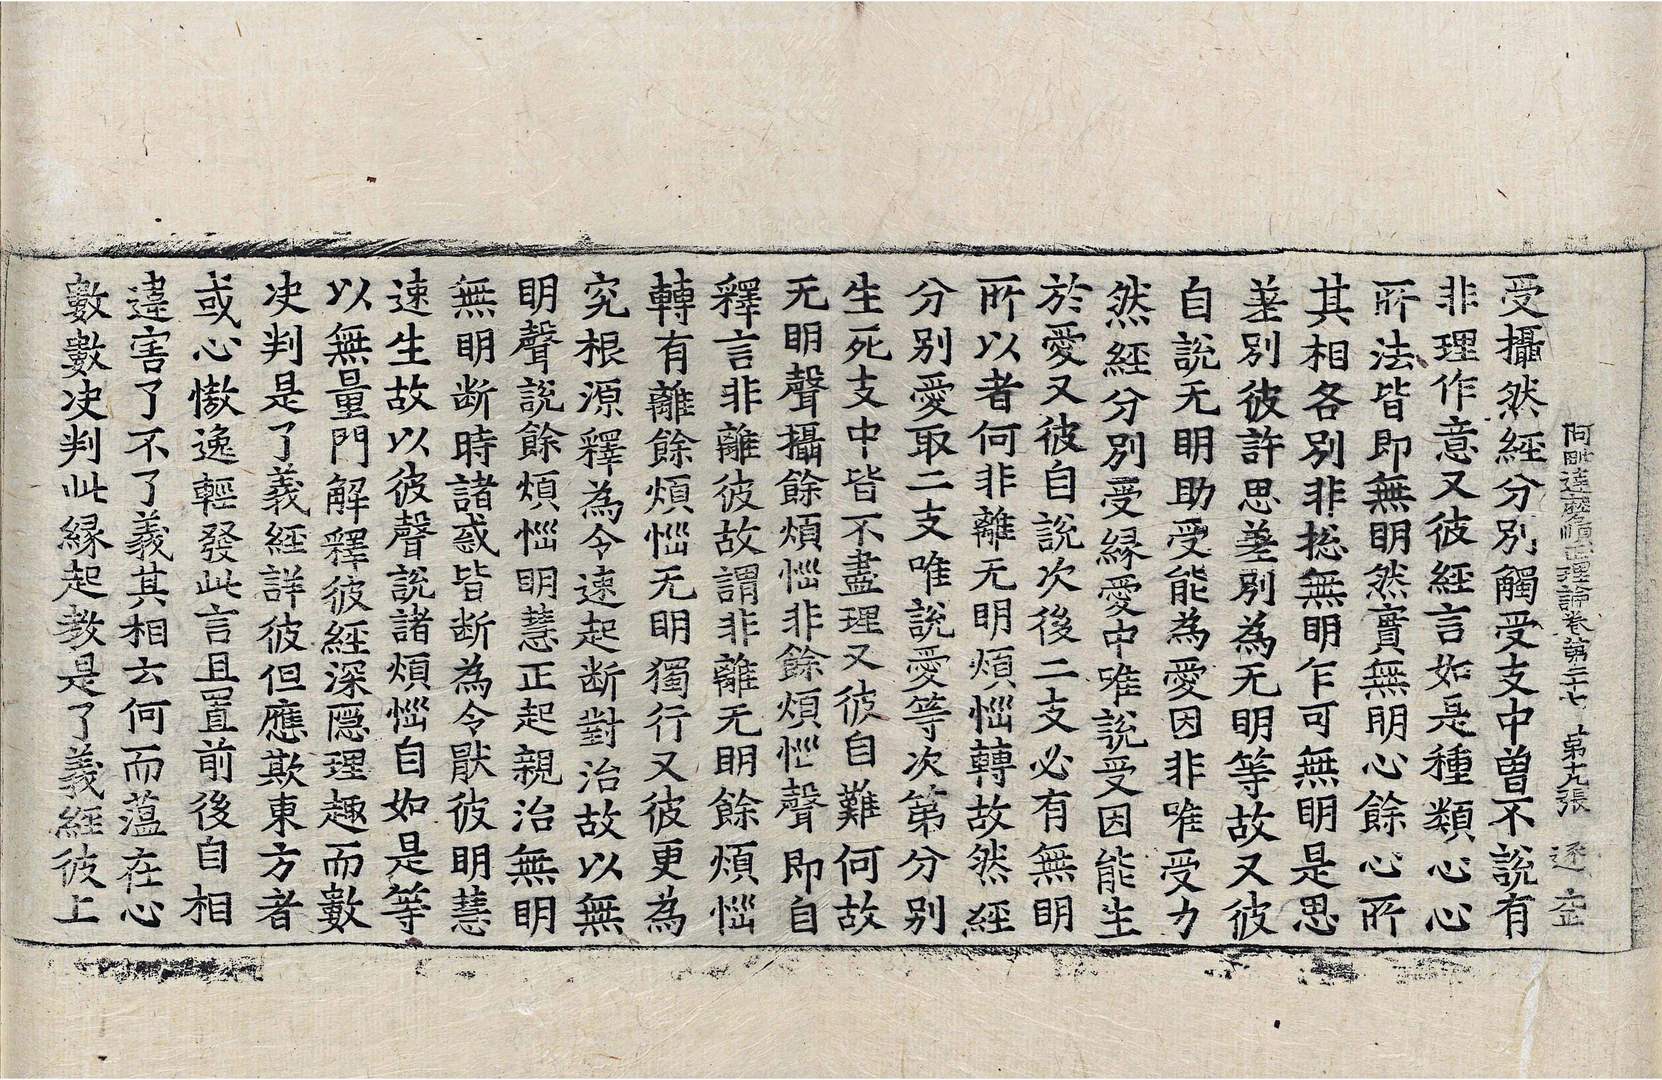 阿毗達磨順正理論卷第二十七 第九張 逐 㐬
受攝然經分別觸受支中曾不說有
非理作意又彼經言如是種類心心
所法皆即無明然實無明心餘心所
其相各別非捴無明乍可無明是思
差別彼許思差別為无明等故又彼
自說无明助受能為愛因非唯受力
然經分別受緣愛中唯說受因能生
於愛又彼自說次後二支必有無明
所以者何非離无明煩惱轉故然經
分別愛取二支唯說愛等次第分別
生死支中皆不盡理又彼自難何故
无明聲攝餘煩惱非餘煩惱聲即自
釋言非離彼故謂非離无明餘煩惱
轉有離餘煩惱无明獨行又彼更為
究根源釋為令速起断對治故以無
明聲說餘煩惱明慧正起親治無明
無明断時諸惑皆断為令猒彼明慧
速生故以彼聲說諸煩惱自如是等
以無量門解釋彼經深隱理趣而數
决判是了義經詳彼但應欺東方者
或心慠逸輕發此言且置前後自相
違害了不了義其相云何而薀在心
數數决判此緣起教是了義經彼上